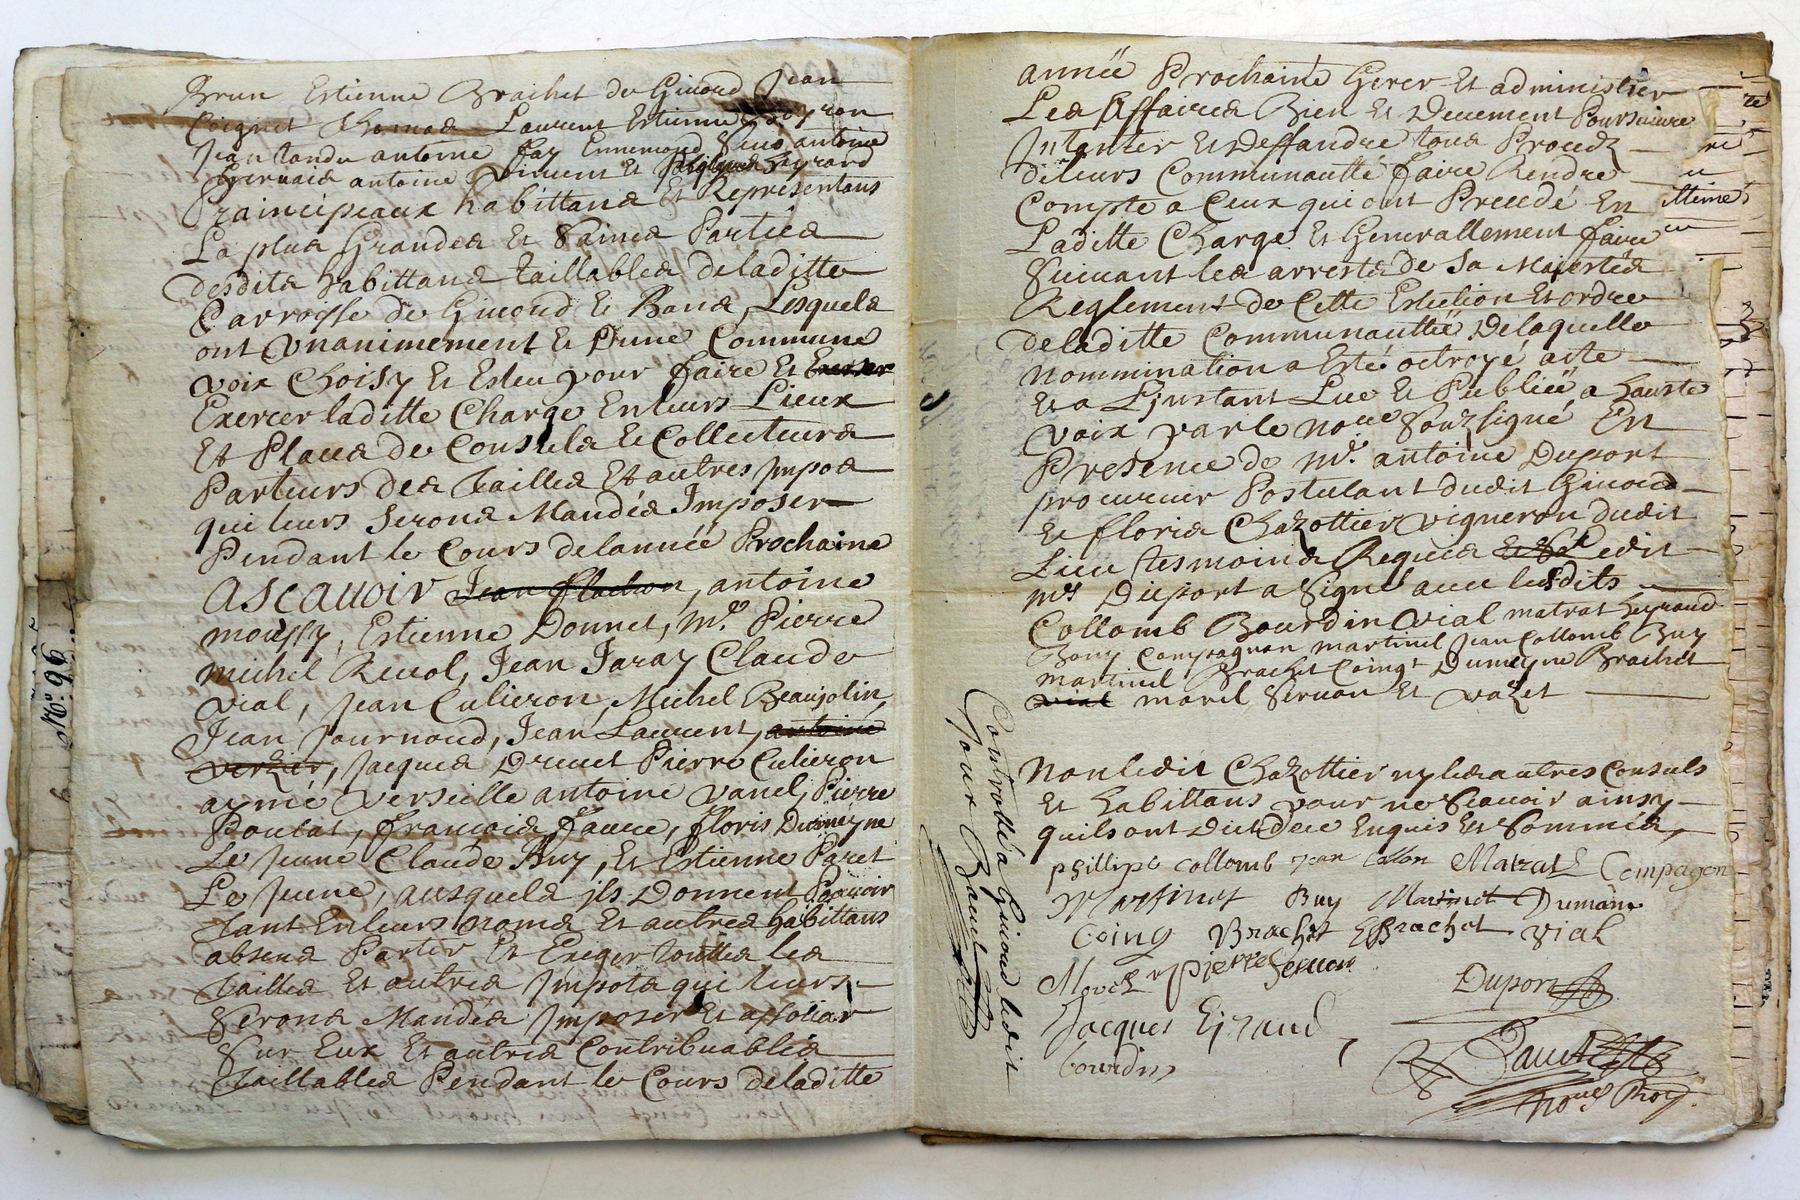 Brun Estienne Brachet de Giuord Jean
Coignet Thomas Laurent Estienne Poyron
Jean Jandu antoine fay Ennemond antoine
Geruaid antoine Vincent Et Leyrard
Principeaux habittans Et Representans
La plus Grandes Et Saines Parties
desdits habittans taillables deladitte
Parroisse de Giuord Et Bans, Lesquels
ont Vnanimement Et Dune Commune
voix Choisy Et Esleu pour faire Et Exerser
Exercer laditte Charge Enleurs Lieux
Et Places de Consuls Et Collecteurs
Parteurs des tailles Et autres Jmpos
qui leurs Serons Mandés Imposer
Pendant le Cours delannée Prochaine
Ascauoir Jean flachon, antoine
moussy, Estienne Donnet, Mr. Pierre
michel Reuol, Jean Faray Claude
Vial, Jean Culieron, Michel Beaujolin,
Jean Journoud, Jean Laurent, antoine
verzier, Jacques Dreuet Pierre Culieron
aymé Verseille antoine Vanel, Pierre
Poulat, francois faure, floris Dumeyne
Le Jeune Claude Buy, Et Estienne Paret
Le Jeune, ausquels jls Donnent Pouuoir
tant Enleurs noms Et autres habittans
absens Partir Et Exeger touttes les
tailles Et autres Jmpots qui leurs
Serons Mandés Jmposer Et
Sur Eux Et autres Contribuables
Taillables Pendant le Cours deladitte
année Prochaine Gerer Et administrer
Les Affaires Bien Et Deuement Poursuiure
Jntanter Et Deffandre tous Procedz
deleurs Communautté faire Rendre
Compte a Ceux qui ont Precedé En
Laditte Charge Et Generallement faire
Suiuant les arrests de Sa Majestés
Reglement de Cette Eslection Et ordre
deladitte Communauttéé Delaquelle
Nommination a Esté octroyé acte
Et a Ljnstant Lue Et Publiée, a hauste
voix par le noue Souzsigné En
Presence de Mr. antoine Duport
procureur Postulant dudit Giuord
Et floris Chazottier vigneron dudit
Lieu tesmoins Requis ledit
Mr Duport a Signé auec lesdits
Collomb Bourdin Vial matrat heyraud
Bouy Compagnon martinet Jean Collomb Buy
martinet Brachet Coingt Dumeyne Brachet
vial morel Seruan Et vazet
Non ledit Chazottier ny lesautres Consuls
Et habittans pour ne Scauoir ainsy
quils ont Dict dece Enquis Et Sommés,
phillipe collomb Jean Matrat Compagon
Martinet Buy Martinet Dumaine
Coing Brachet EBrachet Vial
Morel pierre Seruan
Duport
Jacques Eyraud
bourdin
Noue Roy.
Controllé a Giuord ledit
Jour
N°. 96